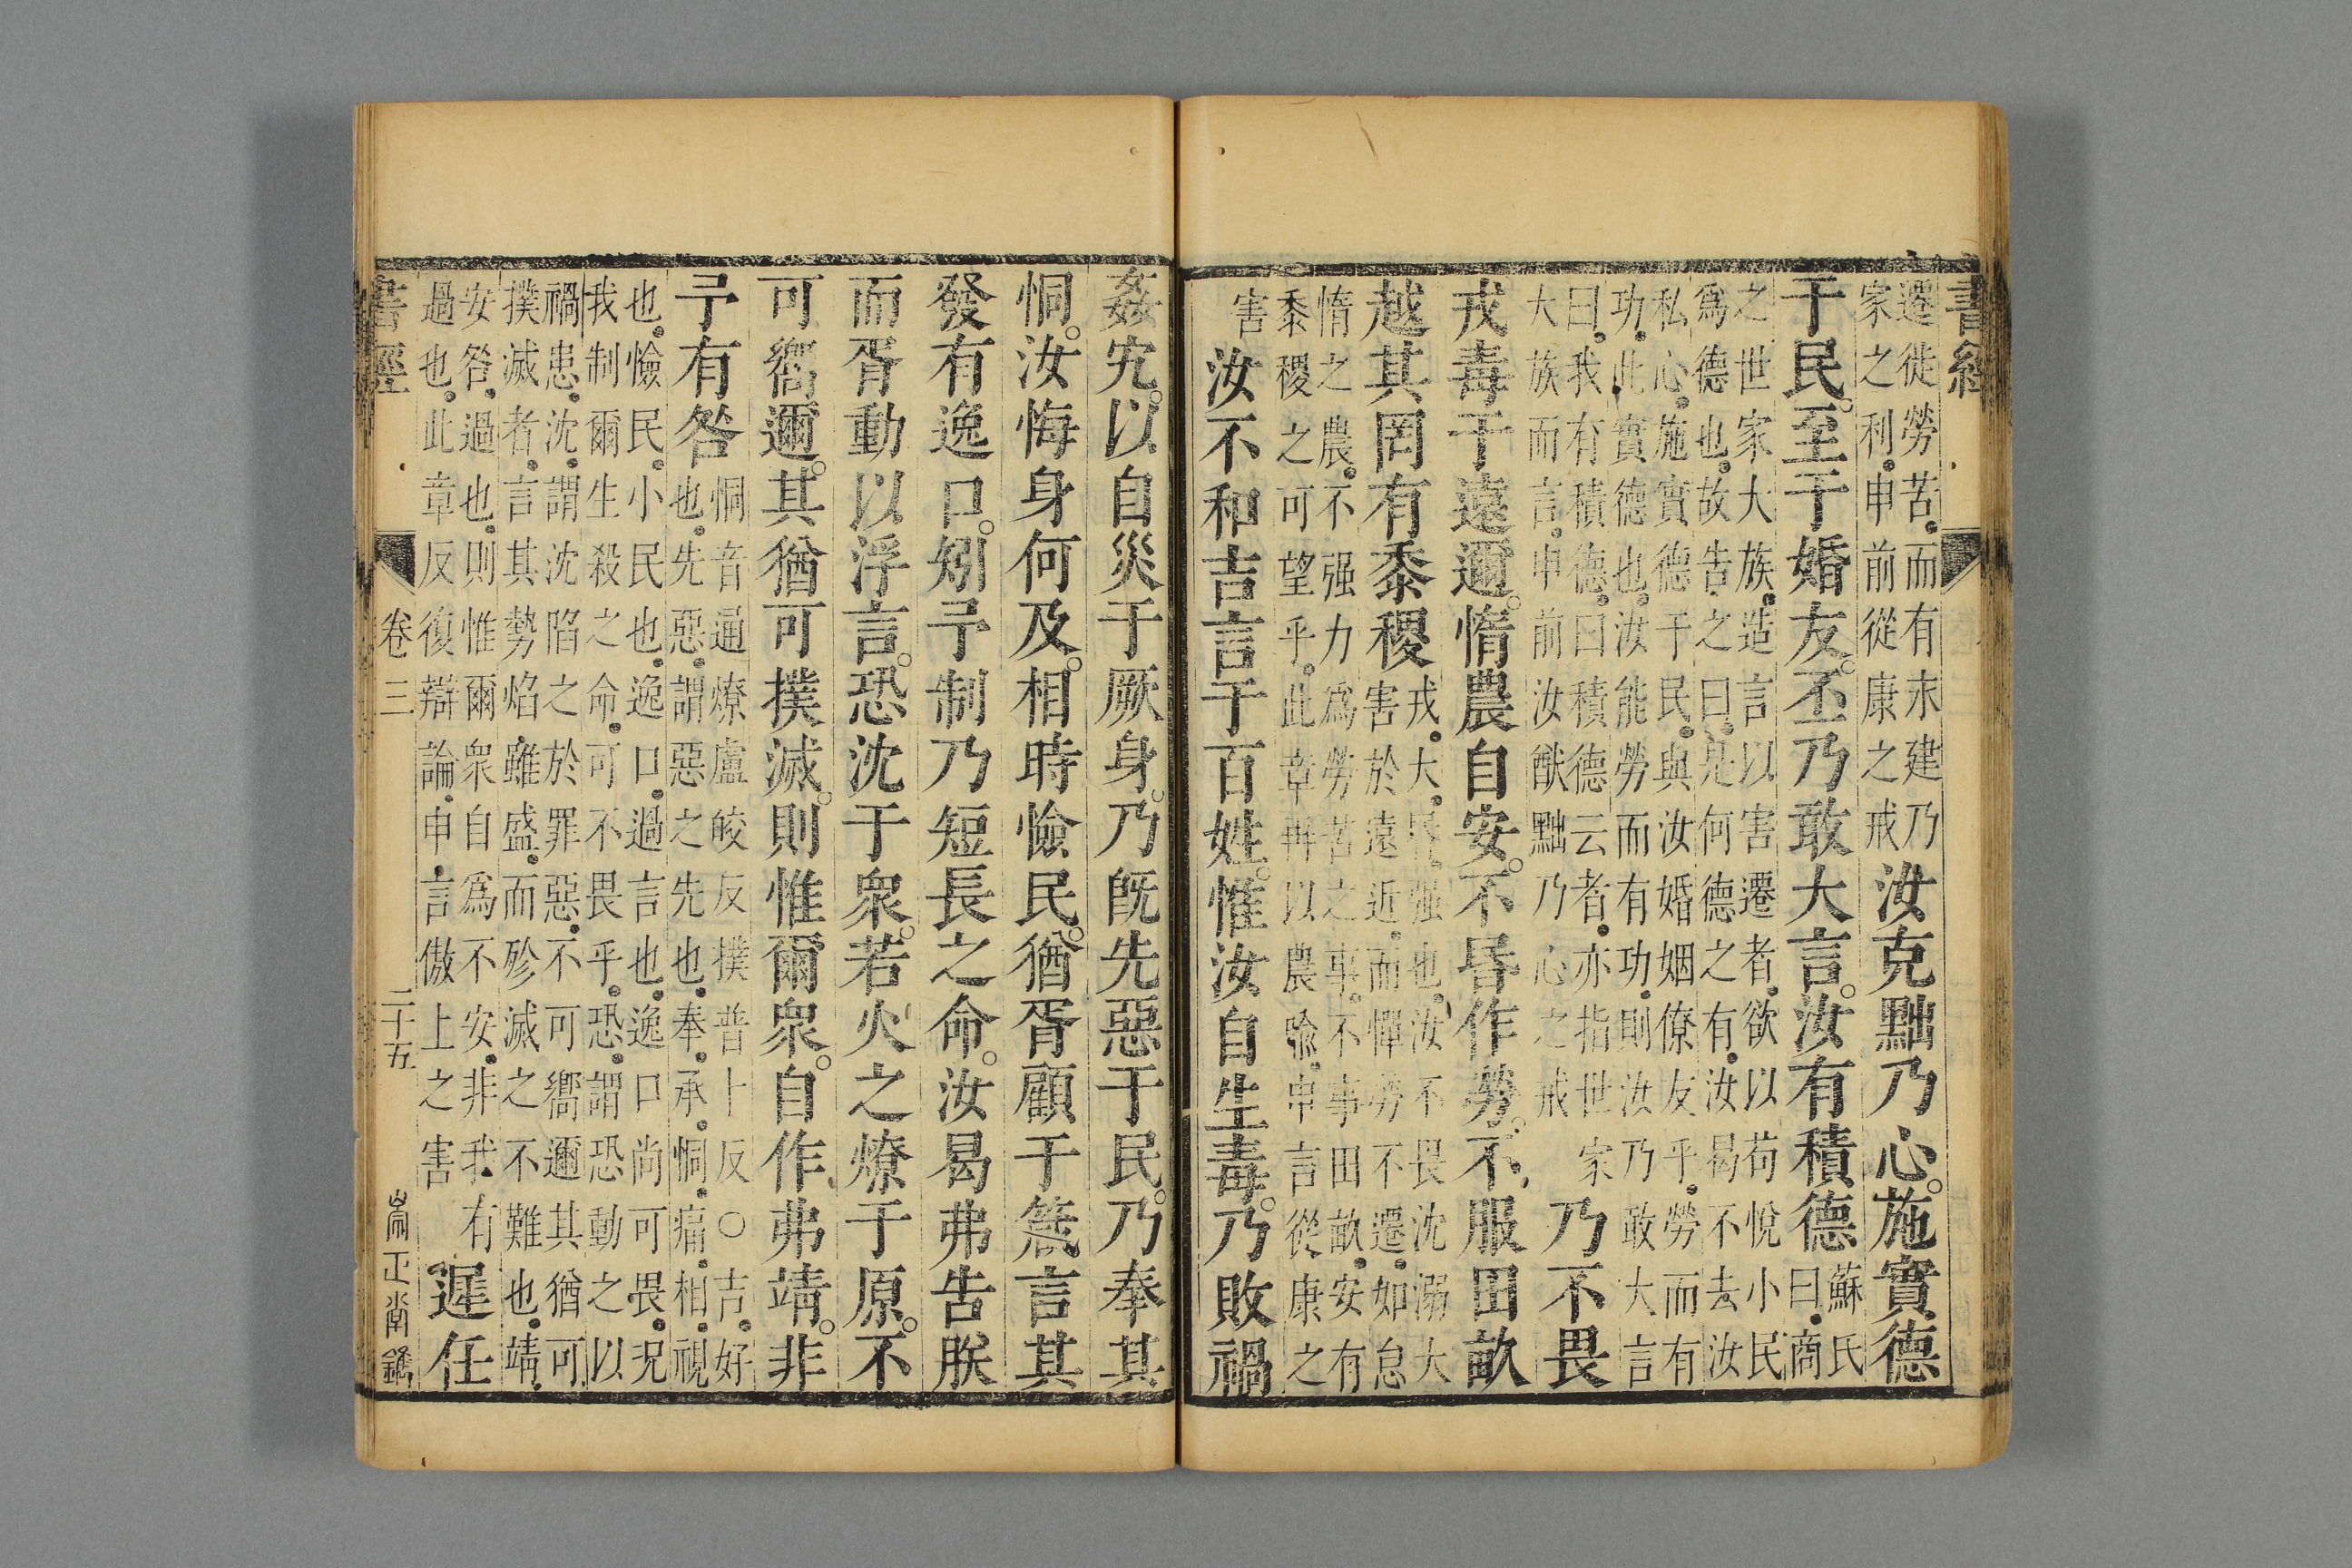 書經
遷徙勞苦而有永建乃
家之利申前從康之戒
汝克黜乃心。施實德
于民。至于婚友。丕乃敢大言。汝有積德
蘇氏
曰商
之世家大族造言以害遷者欲以苟悅小民
爲德也故告之曰是何德之有汝曷不去汝
私心施實德于民與汝婚姻僚友乎勞而有
功此實德也汝能勞而有功則汝乃敢大言
曰我有積德曰積德云者亦指世家
大族而言申前汝猷黜乃心之戒
乃不畏
戎毒于遠邇。惰農自安。不昬作勞。不服田畝
越其罔有黍稷
戎大昬强也汝不畏沈溺大
害於遠近而憚勞不遷如怠
惰之農不强力爲勞苦之事不事田畝安有
黍稷之可望乎此章再以農喻申言從康之
害
汝不和吉言于百姓。惟汝自生毒。乃敗禍
姦宄。以自災于厥身。乃旣先惡于民。乃奉其
恫。汝悔身何及。相時憸民。猶胥顧于箴言其
發有逸口。矧予制乃短長之命。汝曷弗告朕
而胥動以浮言。恐沈于衆。若火之燎于原。不
可嚮邇。其猶可撲滅。則惟爾衆。自作弗靖。非
予有咎
恫音通燎盧皎反撲普卜反○吉好
也先惡謂惡之先也奉承恫痛相視
也憸民小民也逸口過言也逸口尚可畏況
我制爾生殺之命可不畏乎恐謂恐動之以
禍患沈謂沈陷之於罪惡不可嚮邇其猶可
撲滅者言其勢焰雖盛而殄滅之不難也靖
安咎過也則惟爾衆自爲不安非我有
過也此章反復辯論申言傲上之害
遲任
書經 卷三 二十五 崇正堂鐫